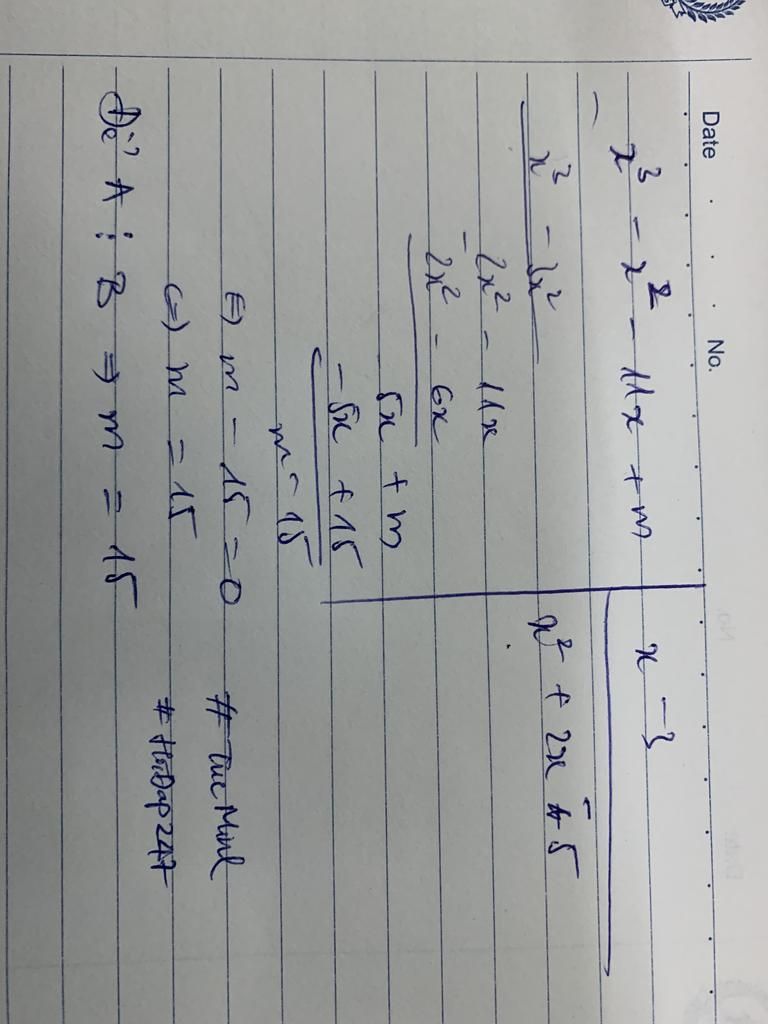 Date No.
x³ - x² - 11x + m x - 3
x³ - 3x² x² + 2x - 5
2x² - 11x
2x² - 6x
5x + m
- 5x + 15
m - 15
(=) m - 15 = 0 # Tue Minh
(=) m = 15 # HoiDap247
Để A ⋮ B => m = 15